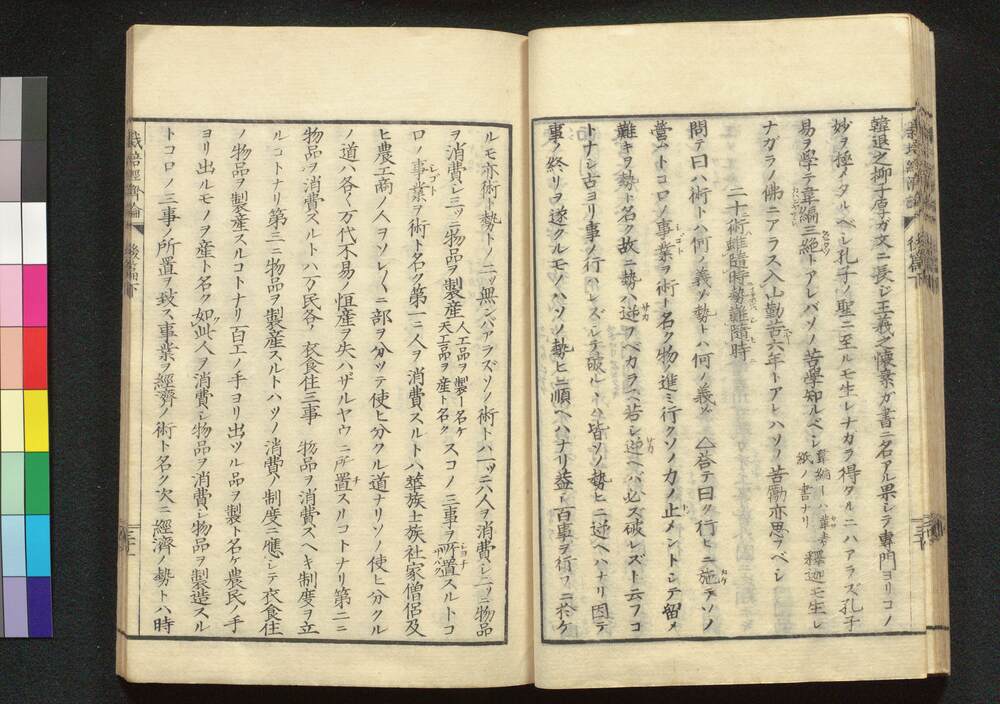 韓退之柳子厚ガ文ニ長ジ王羲之懷素ガ書ニ名アル果シテ專門ヨリコノ
妙ヲ極メタルベシ孔子ノ聖ニ至ルモ生レナカラ得タルニハアラズ孔子
易ヲ學テ韋編三絕トアレバソノ苦學知ルベシ 釋迦モ生レ
ナガラノ佛ニアラス入山勤苦六年トアレハソノ苦勵亦思フベシ
二十術雖隨時勢難隨時
問テ曰ハ術トハ何ノ義ゾ勢トハ何ノ義ゾ △答テ曰ク行ヒニ施テソノ
營ムトコロノ事業ヲ術ト名ク物ノ進ミ行クソノ力ノ止メントシテ留メ
難キヲ勢ト名ク故ニ勢ハ逆フベカラズ若シ逆ヘバ必ス破レズト云フコ
トナシ古ヨリ事ノ行ハレズシテ破ルヽハ皆ソノ勢ヒニ逆ヘハナリ因テ
事ノ終リヲ遂クルモノハソノ勢ヒニ順ヘハナリ蓋ト百事ヲ行フニ於ケ
ルモ亦術ト勢トノ二ツ無ンバアラズソノ術トハ一ツニ人ヲ消費シ二ツニ物品
ヲ消費シ三ツニ物品ヲ製産 人工品ヲ製ト名ケ天工品ヲ産ト名ク スコノ三事ヲ所置スルトコ
ロノ事業ヲ術ト名ク第一ニ人ヲ消費スルトハ華族士族社家僧侶及
ヒ農工商ノ人ヲソレ〳〵ニ部ヲ分ツテ使ヒ分クル道ナリソノ使ヒ分クル
ノ道ハ各〻万代不易ノ恒産ヲ失ハザルヤウニ所置スルコトナリ第二ニ
物品ヲ消費スルトハ万民各〻衣食住三事ノ物品ヲ消費スヘキ制度ヲ立
ルコトナリ第三ニ物品ヲ製産スルトハソノ消費ノ制度ニ應シテ衣食住
ノ物品ヲ製産スルコトナリ百工ノ手ヨリ出ツル品ヲ製ト名ケ農民ノ手
ヨリ出ルモノヲ産ト名ク如此人ヲ消費シ物品ヲ消費シ物品ヲ製造スル
トコロノ三事ノ所置ヲ致ス事業ヲ經濟ノ術ト名ク次ニ經濟ノ勢トハ時
栽培經濟論 後篇下